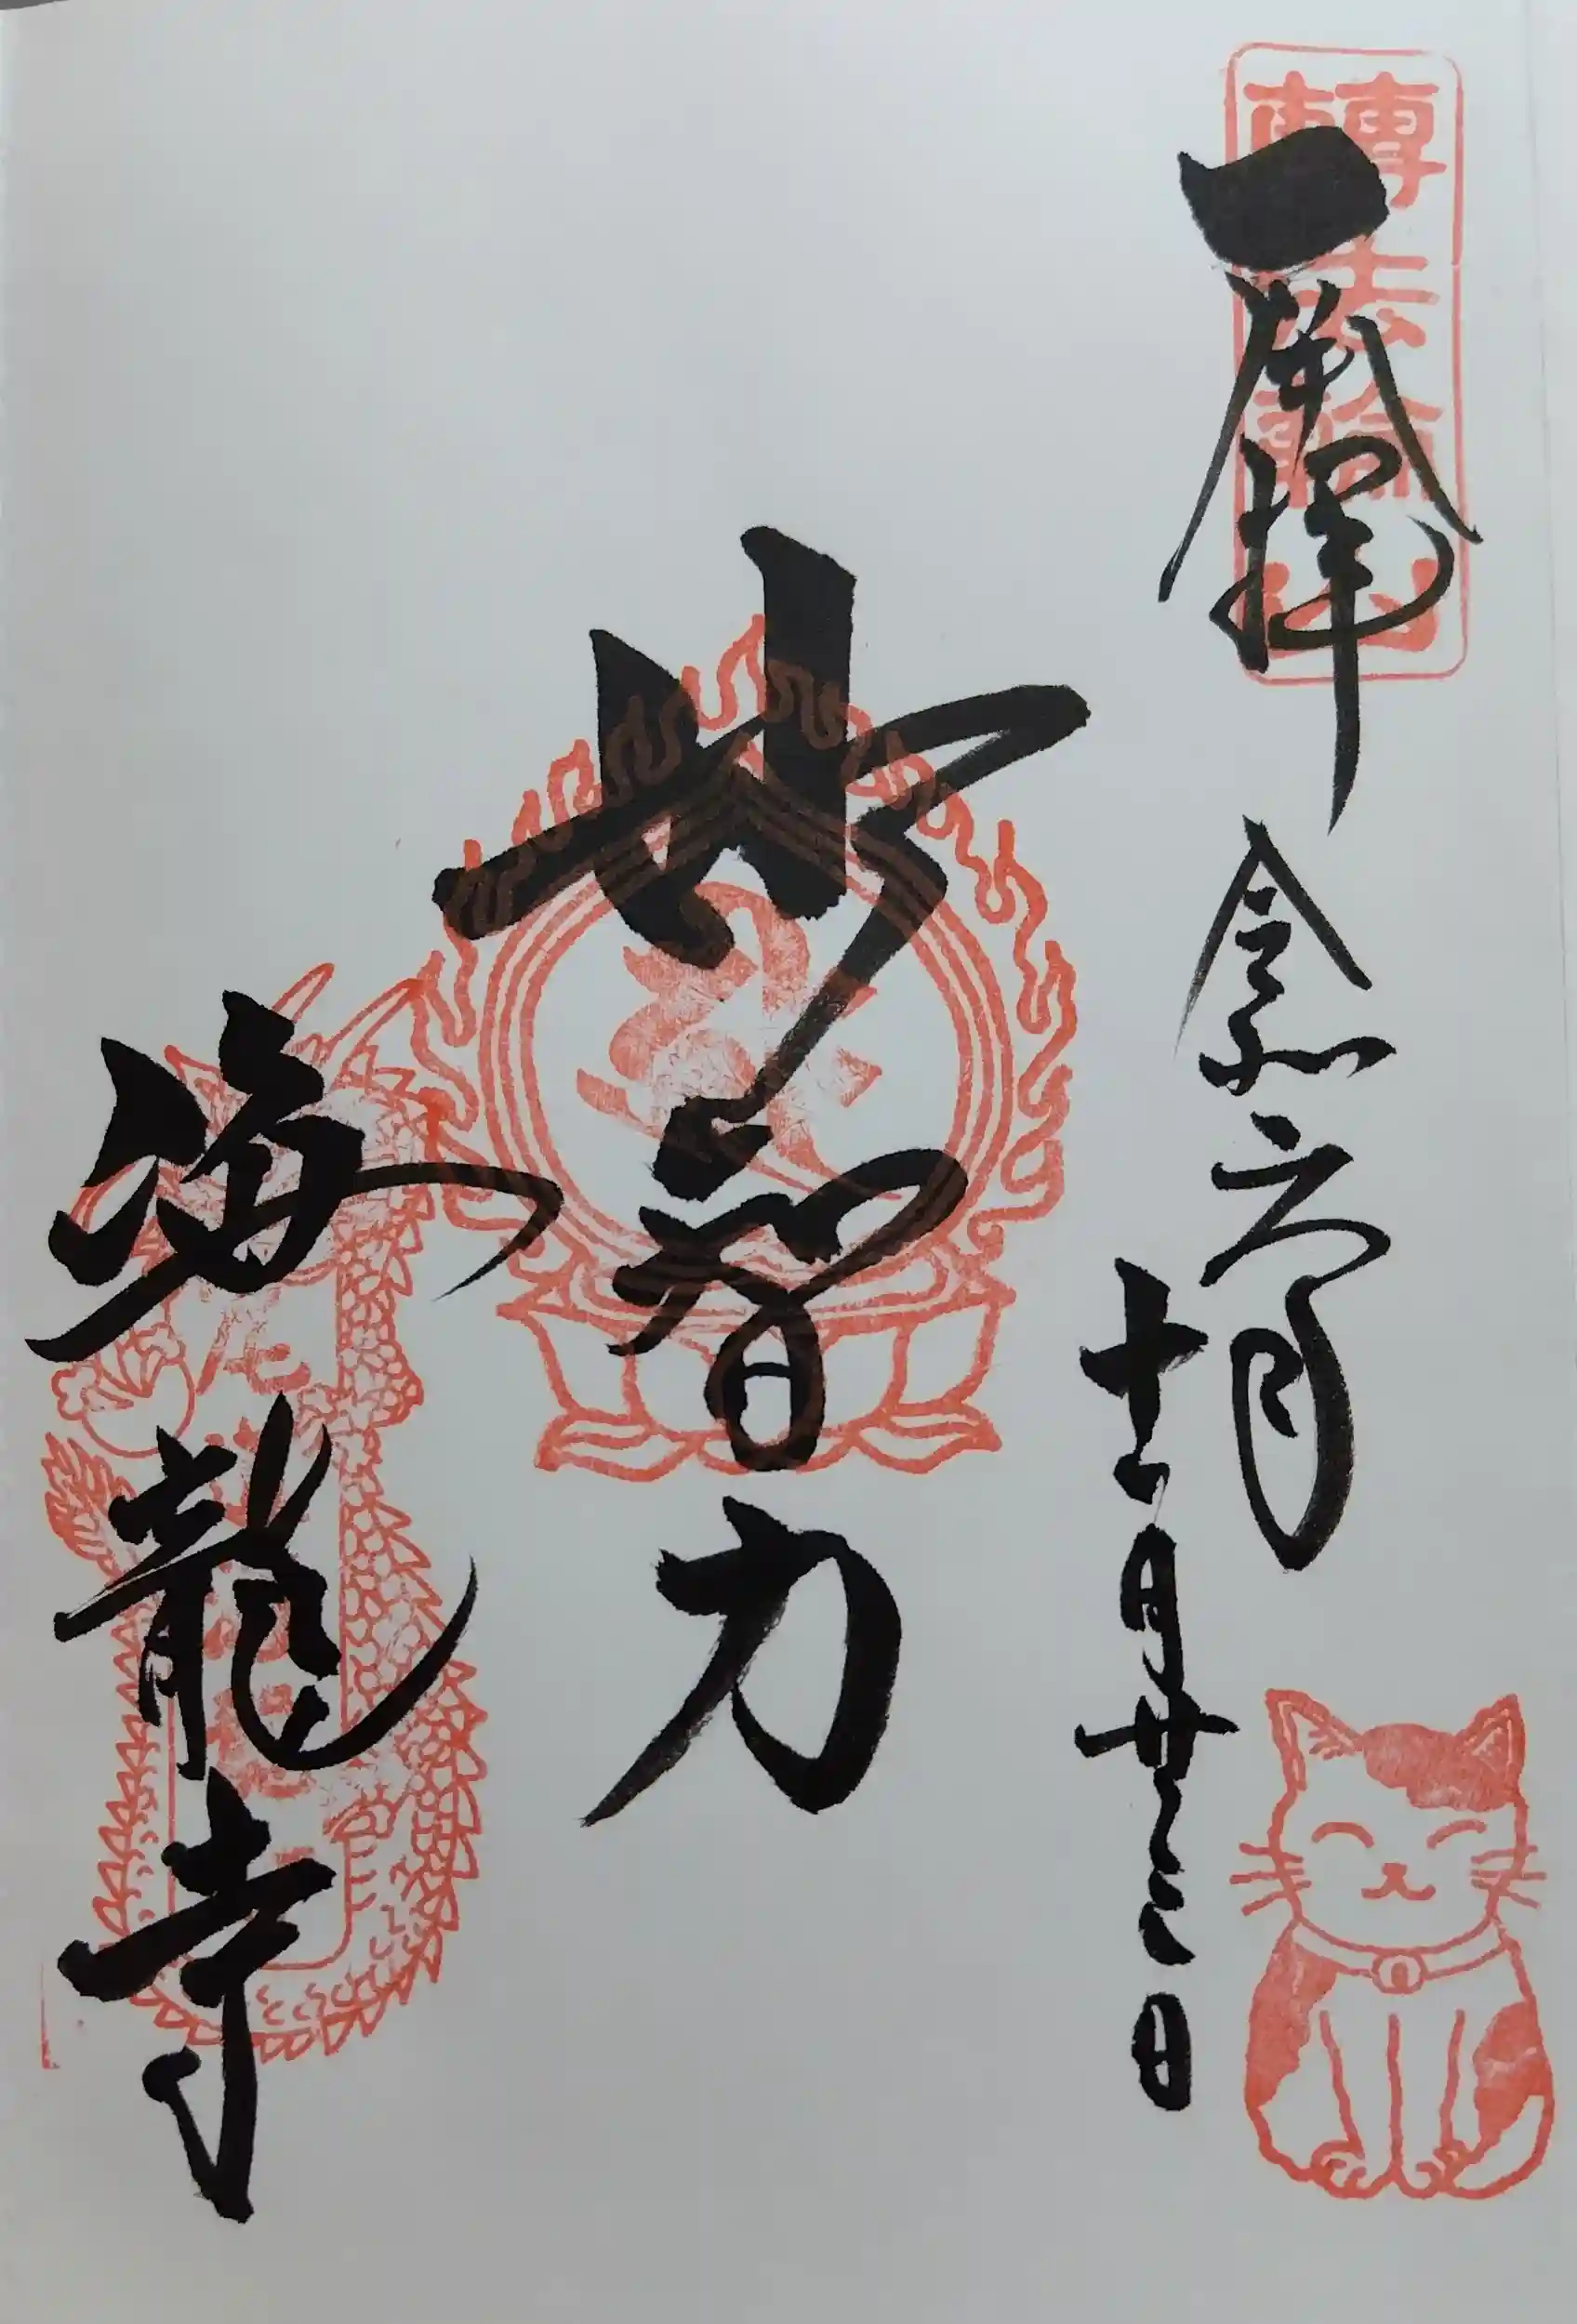 轉法輪山
一
奉拝
令和六年
月廿三日
妙智力
海龍寺